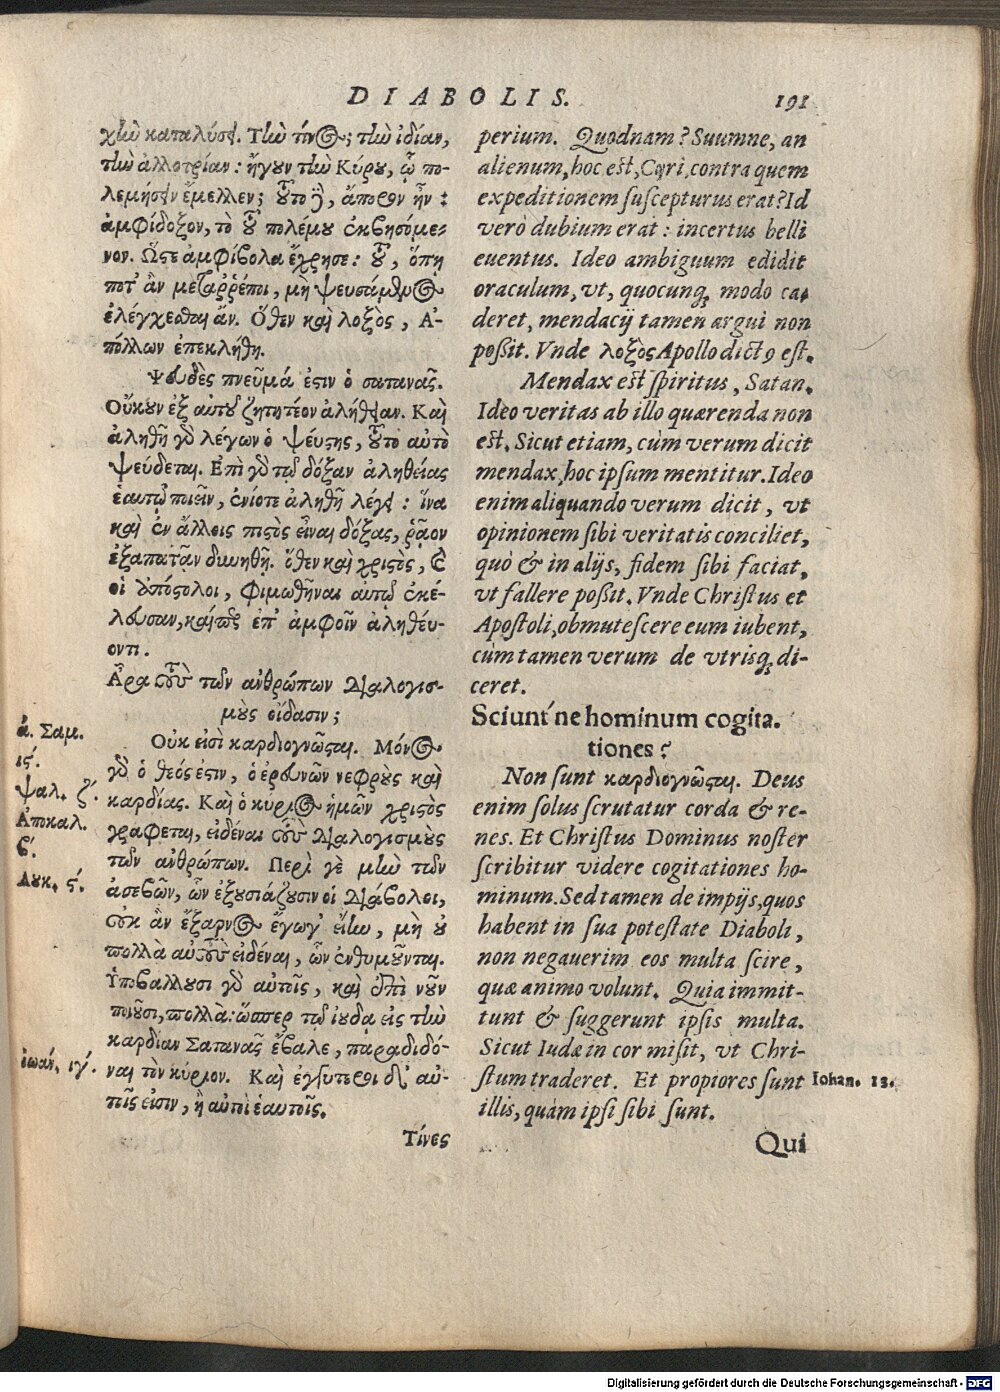 DIABOLIS. 191
χὴν καταλύσει. Τὴν τίνος; τὴν ἰδίαν,
τὴν ἀλλοτρίαν: ἤγουν τὴν Κύρου, ᾧ πο-
λεμήσειν ἔμελλεν; τοῦτο δὲ, ἄπορον ἦν καὶ
ἀμφίδοξον, τὸ τοῦ πολέμου ἐκβησόμε-
νον. Ὥστε ἀμφίβολα ἔχρησε: τοῦ, ὅπη
ποτ' ἂν μεταῤῥέποι, μὴ ψευσάμενος
ἐλέγχεσθαι ἄν. Ὅθεν καὶ λοξὸς, Ἀ-
πόλλων ἐπεκλήθη.
Ψευδὲς πνεῦμά ἐστιν ὁ σατανᾶς.
Οὔκουν ἐξ αὐτοῦ ζητητέον ἀλήθειαν. Καὶ
ἀληθῆ γὸ λέγων ὁ ψεύστης, τοῦτο αὐτὸ
ψεύδεται. Ἐπὶ γὸ τῷ δόξαν ἀληθείας
ἑαυτῷ ποιεῖν, ἐνίοτε ἀληθῆ λέγει: ἵνα
καὶ ἐν ἄλλοις πιστὸς εἶναι δόξας, ῥᾷον
ἐξαπατᾷν δυνηθῇ. ὅθεν καὶ χριστὸς, καὶ
οἱ ἀπόστολοι, φιμωθῆναι αὐτῷ ἐκέ-
λευσαν, καίτοι ἐπ' ἀμφοῖν ἀληθεύ-
οντι.
Ἆρα τοὺς τῶν ἀνθρώπων διαλογισ-
μοὺς οἴδασιν;
Οὐκ εἰσὶ καρδιογνῶσται. Μόνος
γὸ ὁ θεός ἐστιν, ὁ ἐρευνῶν νεφροὺς καὶ
καρδίας. Καὶ ὁ κύριος ἡμῶν χριστὸς
γράφεται, εἰδέναι τοὺς διαλογισμοὺς
τῶν ἀνθρώπων. Περὶ γε μὴν τῶν
ἀσεβῶν, ὧν ἐξουσιάζουσιν οἱ διάβολοι,
οὐκ ἂν ἔξαρνος ἔγωγ' εἴην, μὴ οὐ
πολλὰ αὐτοὺς εἰδέναι, ὧν ἐνθυμοῦνται.
Ὑποβάλλουσι γὸ αὐτοῖς, καὶ ἐπὶ νοῦν
ποιοῦσι, πολλὰ: ὥσπερ τῷ ἰούδα εἰς τὴν
καρδίαν Σατανᾶς ἔβαλε, παραδιδό-
ναι τὸν κύριον. Καὶ ἐγγύτεροι δι' αὐ-
τοῖς εἰσιν, ἢ αὐτοὶ ἑαυτοῖς.
Τίνες
ά. Σαμ.
ις΄.
ψαλ. ζ΄.
Ἀποκαλ.
β΄.
Λουκ. ς΄.
ἰωάν. ιγ΄.
perium. Quodnam? Suumne, an
alienum, hoc est, Cyri, contra quem
expeditionem suscepturus erat? Id
verò dubium erat: incertus belli
euentus. Ideo ambiguum edidit
oraculum, vt, quocunq; modo ca-
deret, mendacij tamen argui non
poßit. Vnde λοξὸς Apollo dictꝰ est.
Mendax est spiritus, Satan.
Ideo veritas ab illo quærenda non
est. Sicut etiam, cùm verum dicit
mendax, hoc ipsum mentitur. Ideo
enim aliquando verum dicit, vt
opinionem sibi veritatis conciliet,
quò & in alijs, fidem sibi faciat,
vt fallere poßit. Vnde Christus et
Apostoli, obmutescere eum iubent,
cùm tamen verum de vtrisq; di-
ceret.
Sciunt'ne hominum cogita.
tiones?
Non sunt καρδιογνῶσται. Deus
enim solus scrutatur corda & re-
nes. Et Christus Dominus noster
scribitur videre cogitationes ho-
minum. Sed tamen de impijs, quos
habent in sua potestate Diaboli,
non negauerim eos multa scire,
quæ animo volunt. Quia immit-
tunt & suggerunt ipsis multa.
Sicut Iudæ in cor misit, vt Chri-
stum traderet. Et propiores sunt
illis, quàm ipsi sibi sunt.
Iohan. 13.
Qui
Digitalisierung gefördert durch die Deutsche Forschungsgemeinschaft - DFG